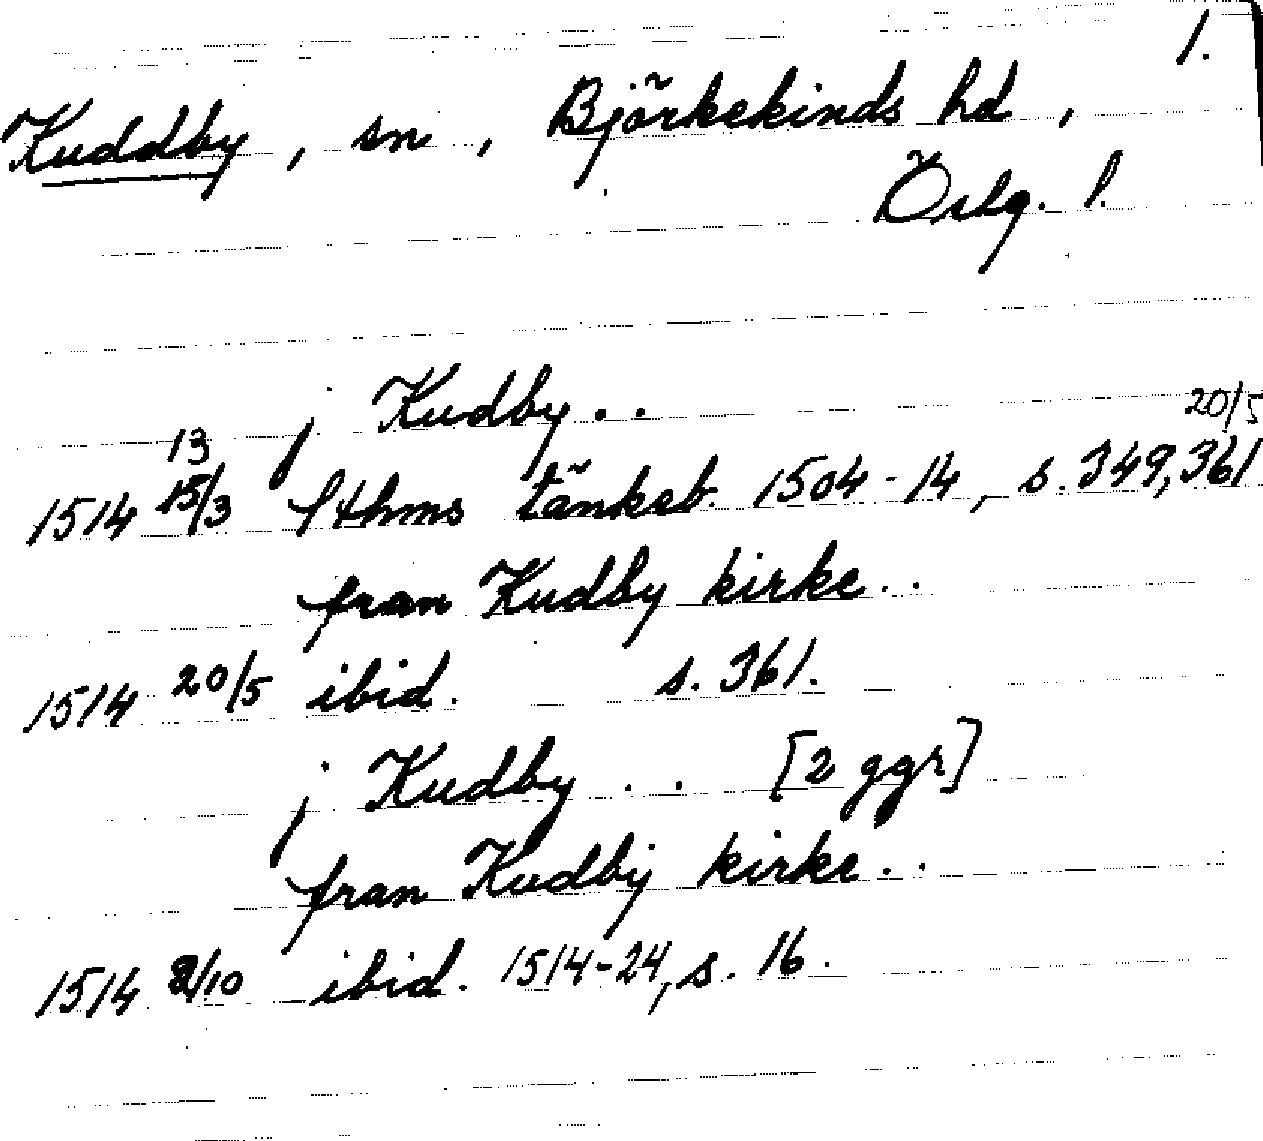 1.
Kuddby, sn, Björkekinds hd,
Östg. l.
j Kudby..
20/5
13
1514 15/3 Sthms tänkeb. 1504-14, s. 349, 361
fran Kudby kirke..
1514 20/5 ibid. s. 361.
j Kudby .. [2 ggr]
fran Kudby kirke..
1514 /10 ibid. 1514-24, s. 16.